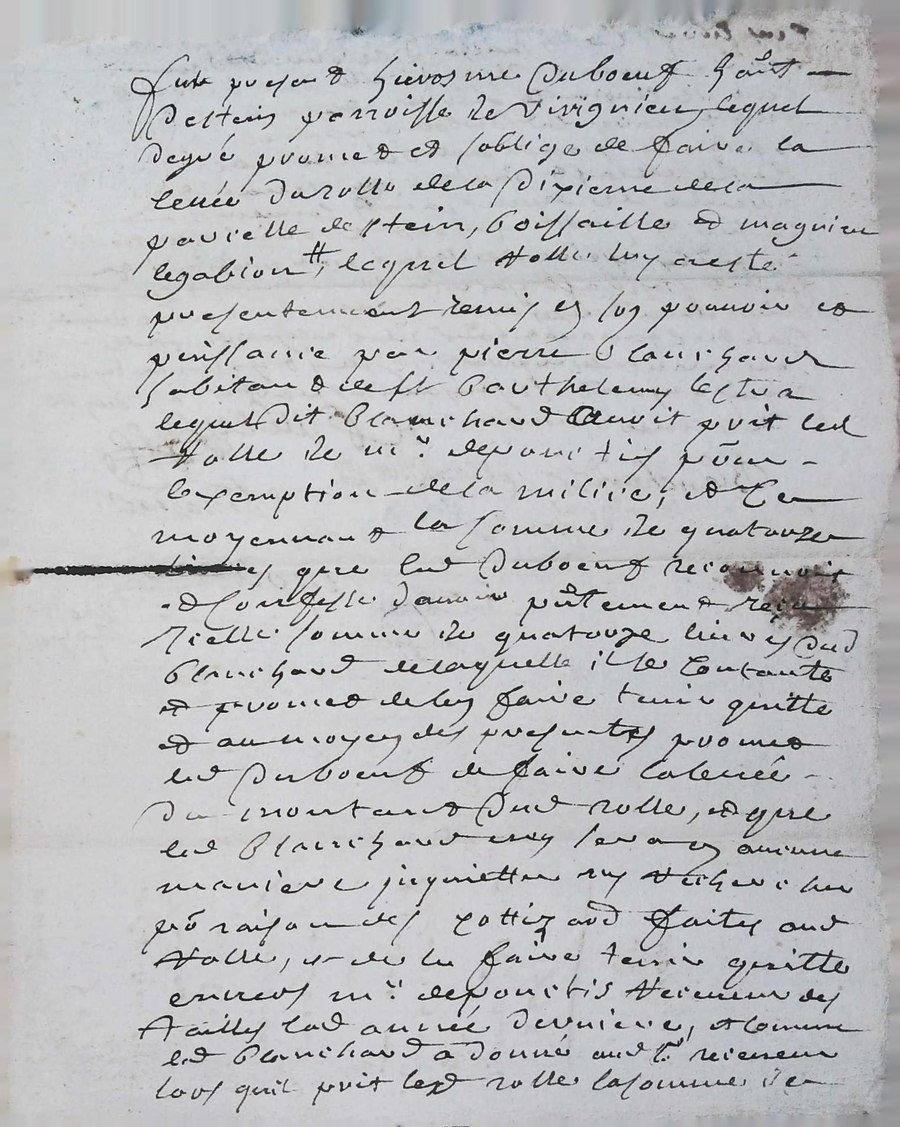 fut present hierosme Duboeuf hant
Destein parroisse de Virignieu, lequel
degré promet et soblige de faire la
levée du rolle de la Dixieme de la
parcelle destein, boissaille et magnieu
legabion, lequel rolle luy a esté
presentement remis en son pouvoir et
puissance par pierre blanchard
habitant de st Barthelemy lestra
lequel dit blanchard avoit prit led
rolle de mr. depontis pour
lexemption de la milice, et ce
moyennant la somme de quatorze
livres que led Duboeuf reconnoit
et confesse davoir pntement reçu
icelle somme de quatorze livres dud
blanchard de laquelle il se contante
et promet de len faire tenir quitte
et au moyen des presentes promet
led Duboeuf de faire la levée
du montant dud rolle, et que
led blanchard ny sera en aucune
maniere inquietter ny recherche
pr raison des cottiz aud faites aud
rolle, et de le faire tenir quitte
envers mr. depontis receveur des
tailles lad année derniere, et comme
led blanchard a donné aud sr receveur
lors quil prit led rolle la somme de